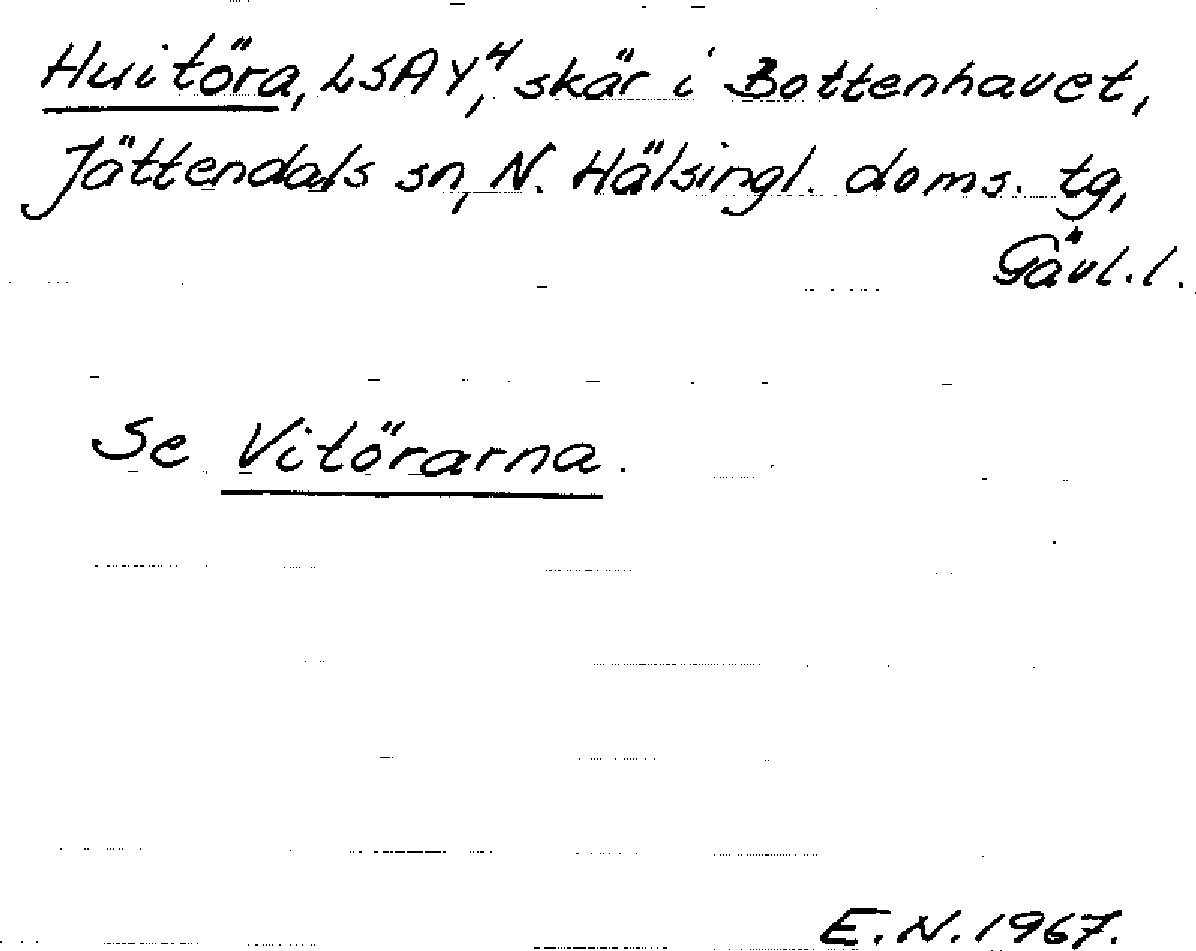 Hvitöra, LSA Y⁴, skär i Bottenhavet,
Jättendals sn, N. Hälsingl. doms. tg,
Gävl. l.
Se Vitörarna.
E.N. 1967.